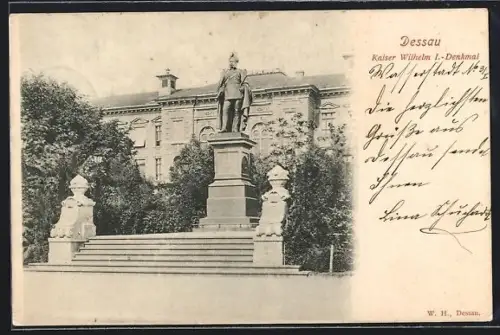 Dessau
Kaiser Wilhelm I.-Denkmal
Wasserstadt No.
Die herzlichsten
Grüße aus
Dessau sendet
Ihnen
Lina
W. H., Dessau.